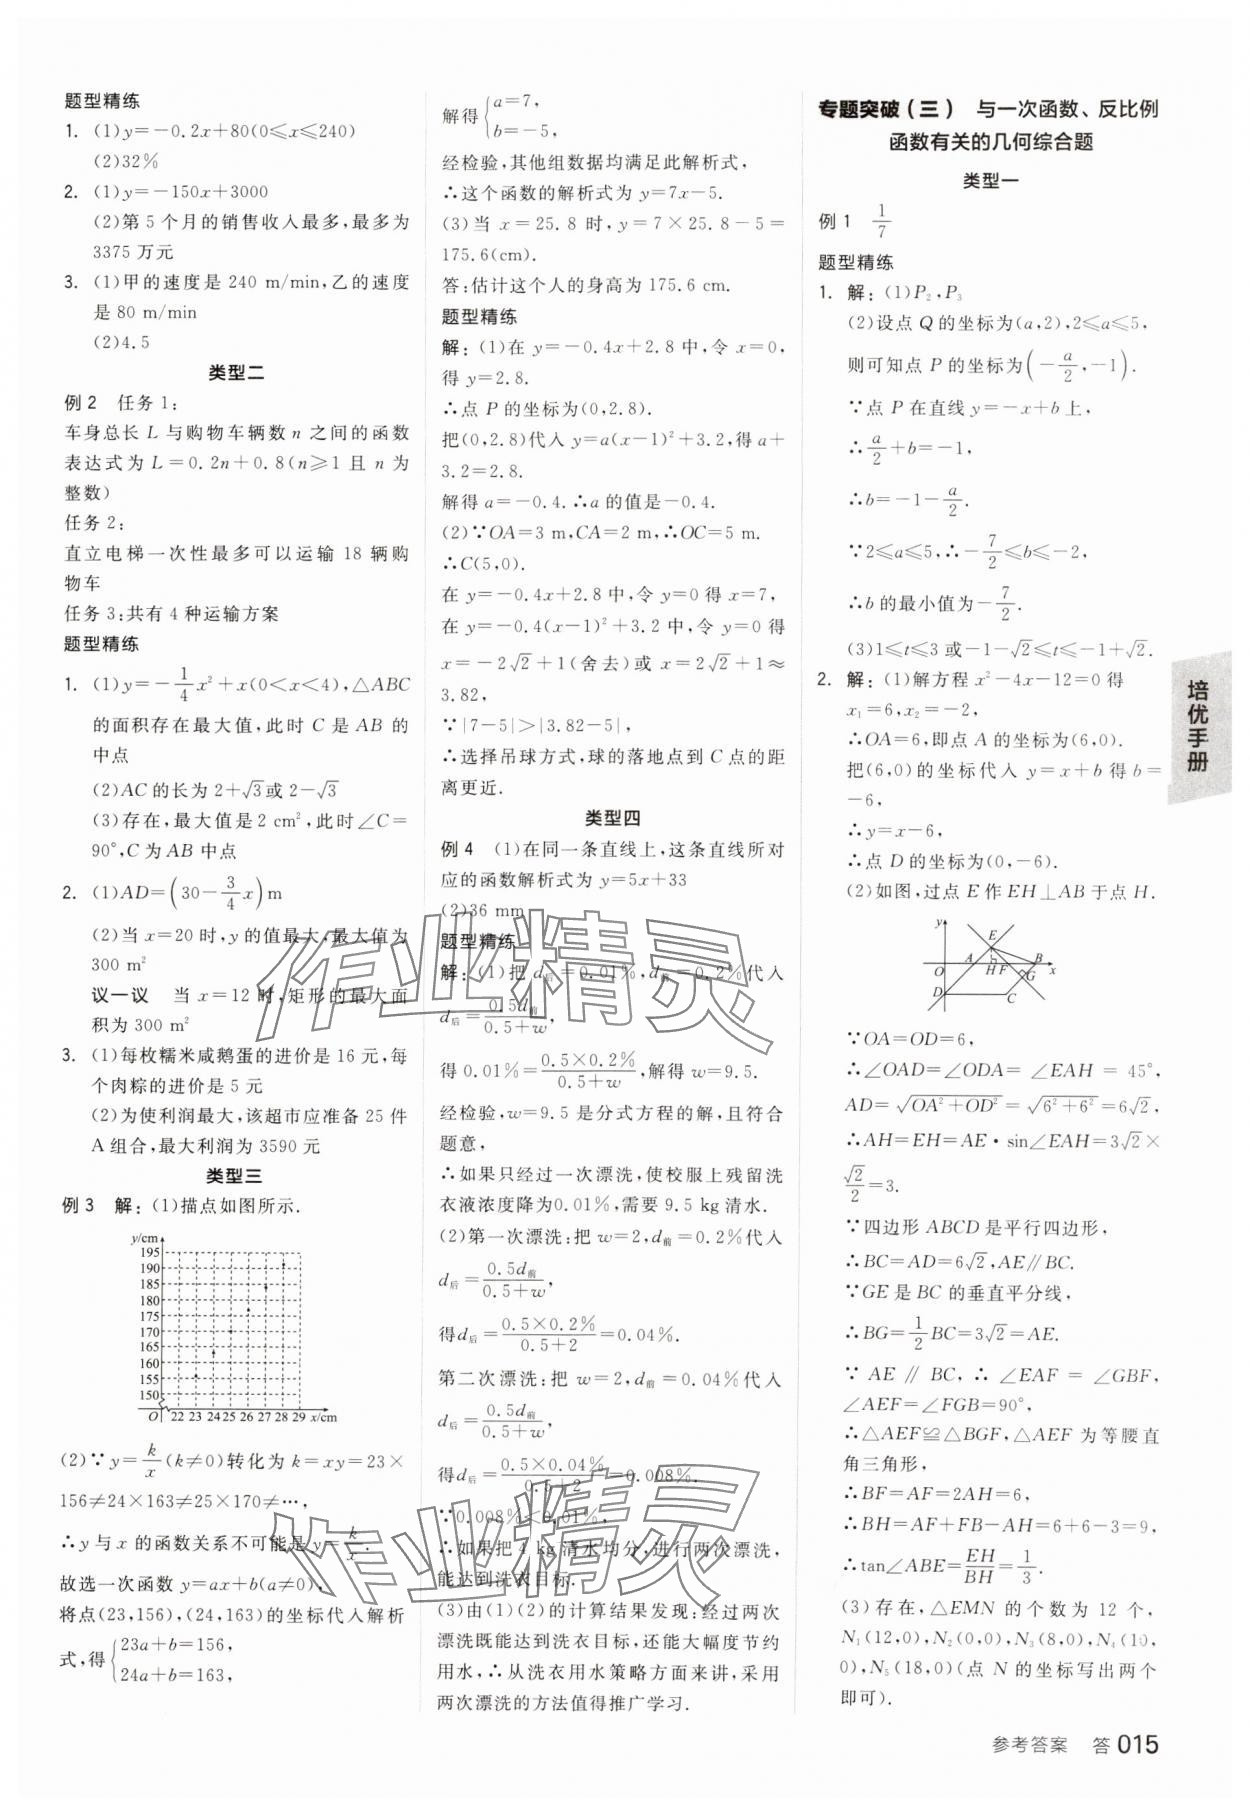 题型精练
1. (1)y=－0.2x+80(0≤x≤240)
(2)32%
2. (1)y=－150x+3000
(2)第 5 个月的销售收入最多,最多为
3375 万元
3. (1)甲的速度是 240 m/min,乙的速度
是 80 m/min
(2)4.5
类型二
例 2 任务 1:
车身总长 L 与购物车辆数 n 之间的函数
表达式为 L=0.2n+0.8(n≥1 且 n 为
整数)
任务 2:
直立电梯一次性最多可以运输 18 辆购
物车
任务 3:共有 4 种运输方案
题型精练
1. (1)y=－1/4x²+x(0<x<4),△ABC
的面积存在最大值,此时 C 是 AB 的
中点
(2)AC的长为 2+√3或 2－√3
(3)存在,最大值是2 cm²,此时∠C=
90°,C为AB中点
2. (1)AD=(30－3/4x)m
(2)当 x=20时,y的值最大,最大值为
300 m²
议一议 当 x=12 时,矩形的最大面
积为 300 m²
3. (1)每枚糯米咸鹅蛋的进价是 16 元,每
个肉粽的进价是 5 元
(2)为使利润最大,该超市应准备 25 件
A 组合,最大利润为 3590 元
类型三
例 3 解:(1)描点如图所示.
y/cm
195
190
185
180
175
170
165
160
155
150
O 22 23 24 25 26 27 28 29 x/cm
(2)∵y=k/x(k≠0)转化为 k=xy=23×
156≠24×163≠25×170≠…,
∴y 与 x 的函数关系不可能是 y=k/x.
故选一次函数 y=ax+b(a≠0),
将点(23,156),(24,163)的坐标代入解析
式,得{23a+b=156,
24a+b=163,
解得{a=7,
b=－5,
经检验,其他组数据均满足此解析式,
∴这个函数的解析式为 y=7x－5.
(3)当 x=25.8 时,y=7×25.8－5=
175.6(cm).
答:估计这个人的身高为 175.6 cm.
题型精练
解:(1)在 y=－0.4x+2.8 中,令 x=0,
得 y=2.8.
∴点 P 的坐标为(0,2.8).
把(0,2.8)代入 y=a(x－1)²+3.2,得 a+
3.2=2.8.
解得 a=－0.4.∴a 的值是－0.4.
(2)∵OA=3 m,CA=2 m,∴OC=5 m.
∴C(5,0).
在 y=－0.4x+2.8 中,令 y=0 得 x=7,
在 y=－0.4(x－1)²+3.2 中,令 y=0 得
x=－2√2+1(舍去)或 x=2√2+1≈
3.82,
∵|7－5|>|3.82－5|,
∴选择吊球方式,球的落地点到 C 点的距
离更近.
类型四
例 4 (1)在同一条直线上,这条直线所对
应的函数解析式为 y=5x+33
(2)36 mm
题型精练
解:(1)把 d后=0.01%,d前=0.2%代入
d后=0.5d前/0.5+w,
得 0.01%=0.5×0.2%/0.5+w,解得 w=9.5.
经检验,w=9.5 是分式方程的解,且符合
题意,
∴如果只经过一次漂洗,使校服上残留洗
衣液浓度降为0.01%,需要 9.5 kg 清水.
(2)第一次漂洗:把 w=2,d前=0.2%代入
d后=0.5d前/0.5+w,
得d后=0.5×0.2%/0.5+2=0.04%.
第二次漂洗:把 w=2,d前=0.04%代入
d后=0.5d前/0.5+w,
得d后=0.5×0.04%/0.5+2=0.008%.
∵0.008%<0.01%,
∴如果把 4 kg 清水均分,进行两次漂洗,
能达到洗衣目标.
(3)由(1)(2)的计算结果发现:经过两次
漂洗既能达到洗衣目标,还能大幅度节约
用水,∴从洗衣用水策略方面来讲,采用
两次漂洗的方法值得推广学习.
专题突破(三) 与一次函数、反比例
函数有关的几何综合题
类型一
例 1 1/7
题型精练
1. 解:(1)P₂,P₃
(2)设点 Q 的坐标为(a,2),2≤a≤5,
则可知点 P 的坐标为(－a/2,－1).
∵点 P 在直线 y=－x+b 上,
∴a/2+b=－1,
∴b=－1－a/2.
∵2≤a≤5,∴－7/2≤b≤－2,
∴b 的最小值为－7/2.
(3)1≤t≤3 或－1－√2≤t≤－1+√2.
2. 解:(1)解方程 x²－4x－12=0 得
x₁=6,x₂=－2,
∴OA=6,即点 A 的坐标为(6,0).
把(6,0)的坐标代入 y=x+b 得 b=
－6,
∴y=x－6,
∴点 D 的坐标为(0,－6).
(2)如图,过点 E 作 EH⊥AB 于点 H.
y
E
O A H F B x
G
D C
∵OA=OD=6,
∴∠OAD=∠ODA=∠EAH=45°,
AD=√OA²+OD²=√6²+6²=6√2,
∴AH=EH=AE·sin∠EAH=3√2×
√2/2=3.
∵四边形 ABCD 是平行四边形,
∴BC=AD=6√2,AE∥BC.
∵GE 是 BC 的垂直平分线,
∴BG=1/2BC=3√2=AE.
∵AE∥BC,∴∠EAF=∠GBF,
∠AEF=∠FGB=90°,
∴△AEF≌△BGF,△AEF 为等腰直
角三角形,
∴BF=AF=2AH=6,
∴BH=AF+FB－AH=6+6－3=9,
∴tan∠ABE=EH/BH=1/3.
(3)存在,△EMN 的个数为 12 个,
N₁(12,0),N₂(0,0),N₃(8,0),N₄(10,
0),N₅(18,0)(点 N 的坐标写出两个
即可).
培优手册
作业精灵
作业精灵
参考答案 答 015